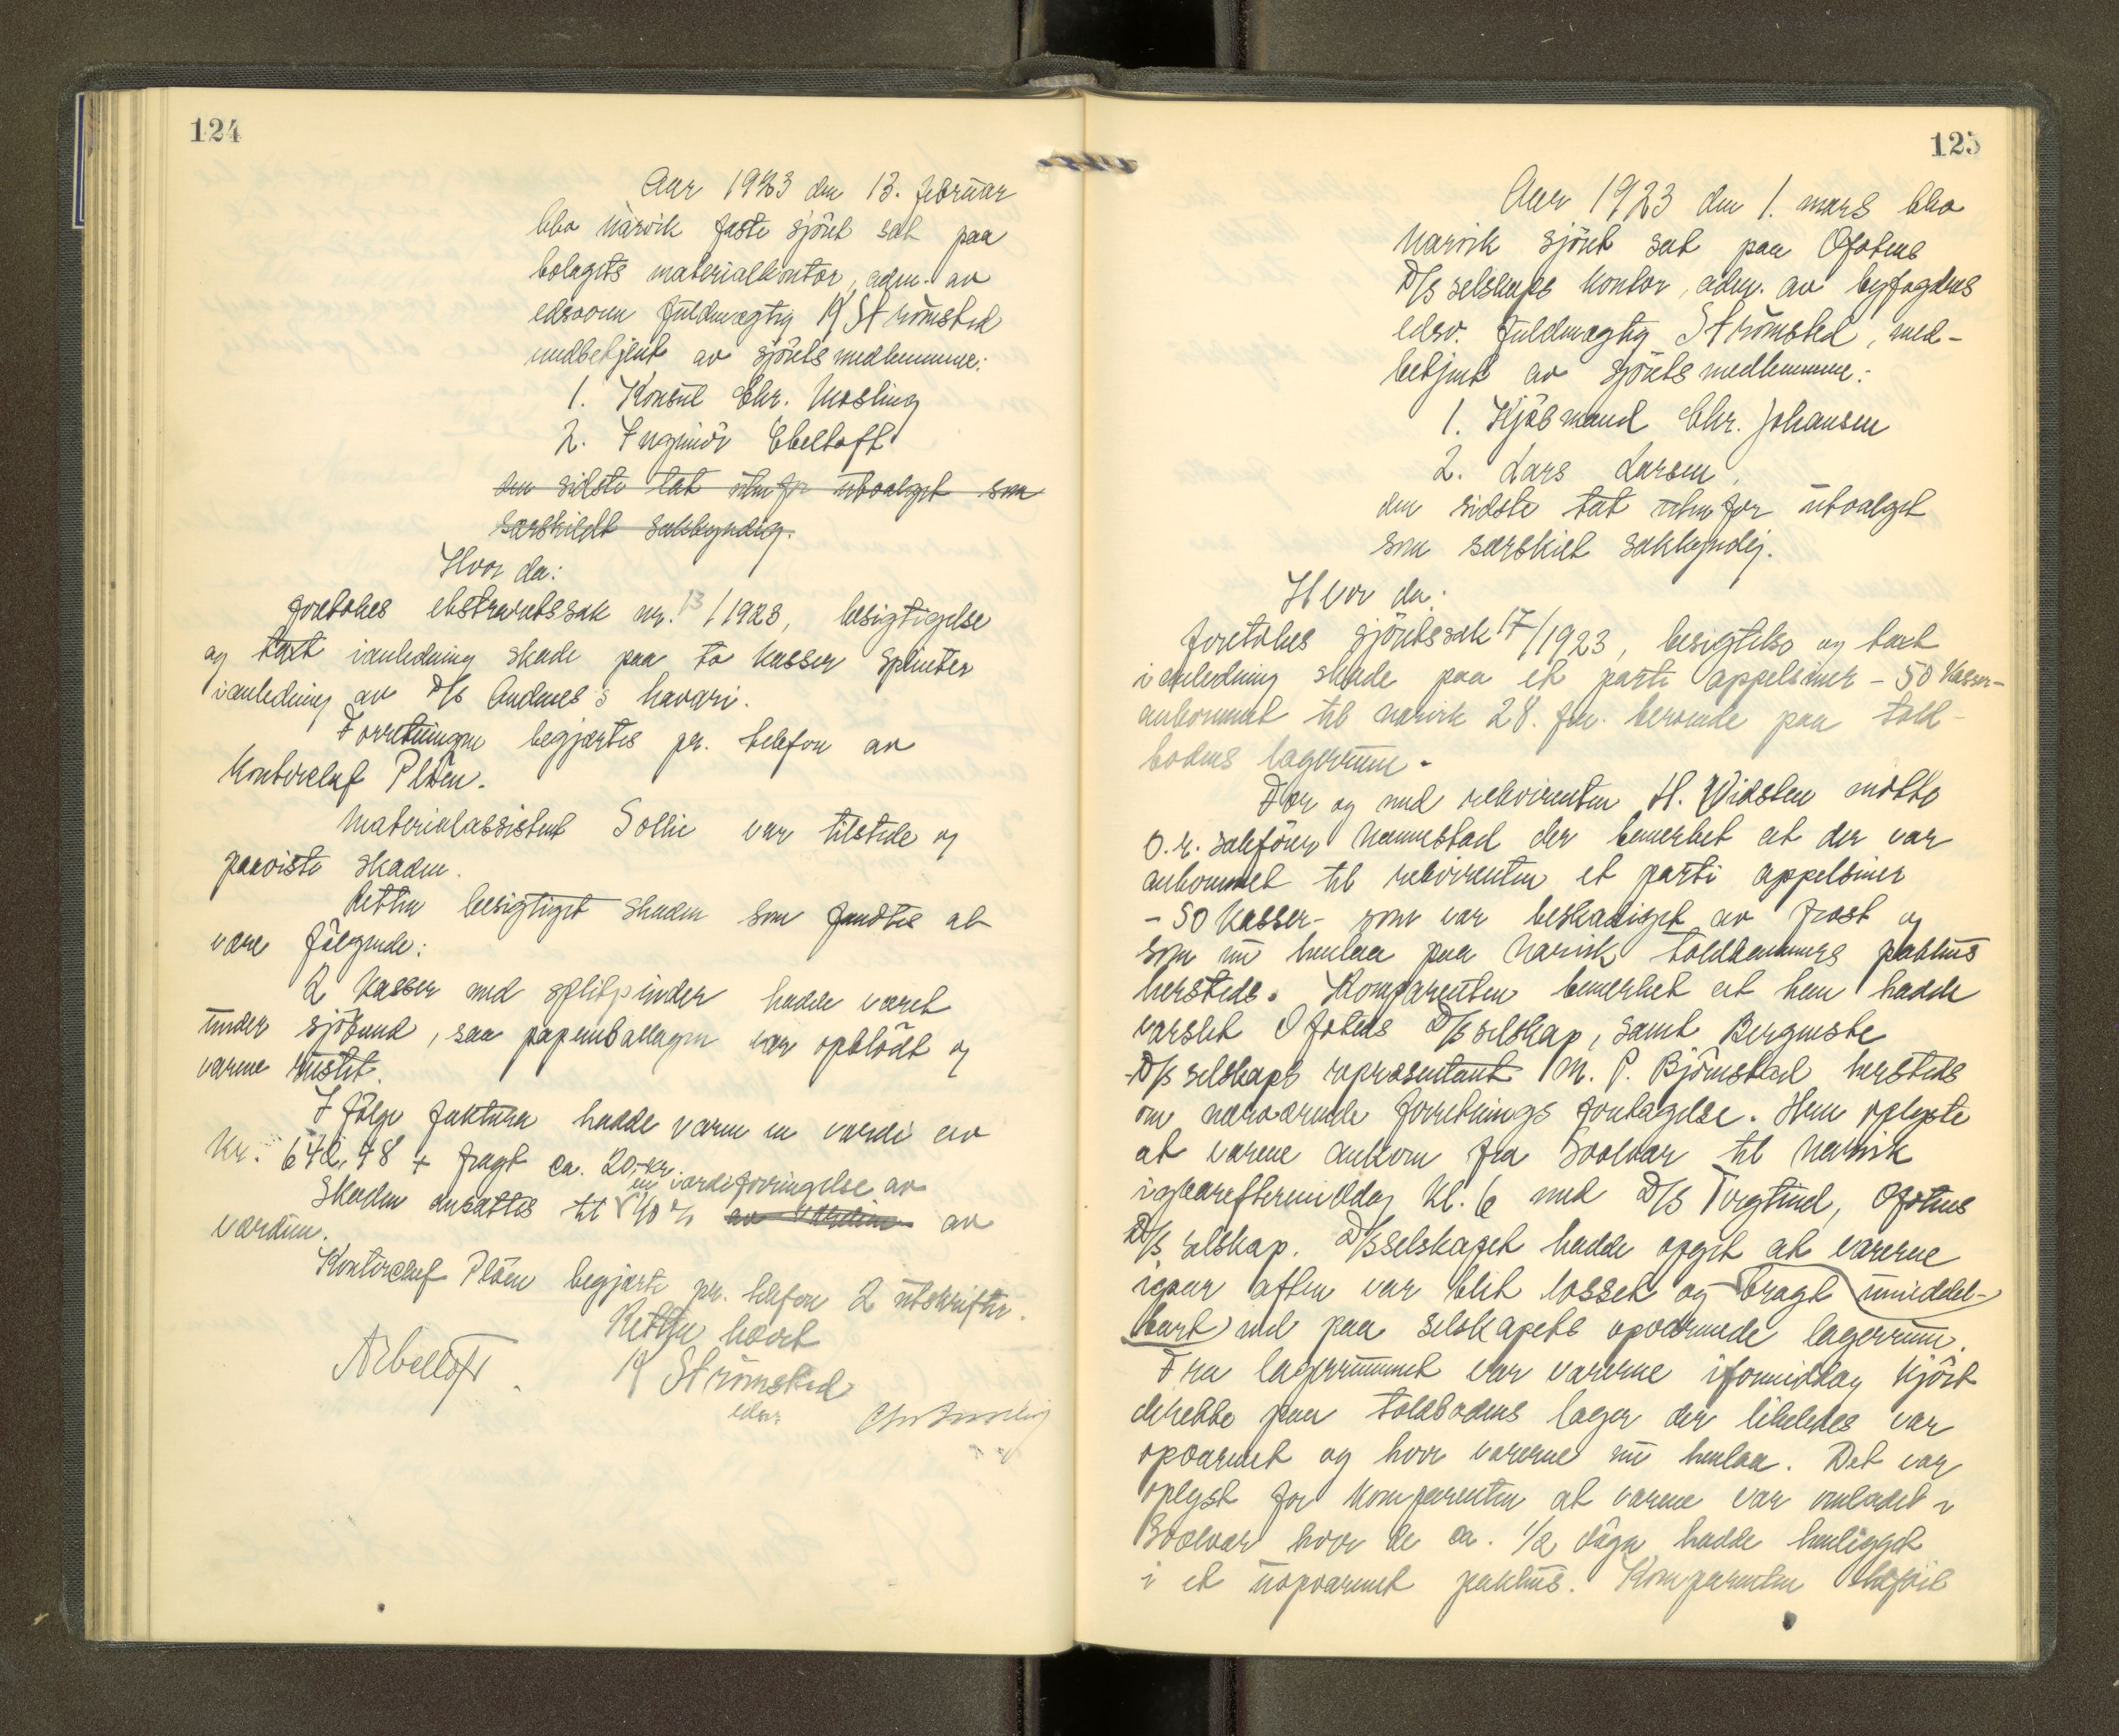 124
Aar 1923 den 13. februar
blev Narvik faste sjöret sat paa
bolagets materialkontor, adm. av
edsvoren fuldmægtig K Strømsted
medbetjent av sjöretsmedlemmene:
1. Konsul Chr. Mosling
2. Ingeniör Ebeltoft
den sidste tat utenfor utvalget som
særskildt sakkyndig.
Hvor da:
foretokes ekstraretssak nr. 13/1923, besigtigelse
og taxt i anledning skade paa to kasser splinter
i anledning av D/S Andenes's havari.
Forretningen begjærtes pr. telefon av
Kontorchef Plöen.
Materialassistent Sollie var tilstede og
paaviste skaden.
Retten besigtiget skaden som fandtes at
være fölgende:
2 kasser med splitpinder hadde været
under sjövand, saa papemballagen var oplöst og
varene rustet.
I fölge faktura hadde varen en værdi av
Kr. 642,48 + fragt ca. 20,- kr.
en værdiforringelse av
Skaden ansattes til 40 % av værdien av
værdien.
Kontorchef Plöen begjærte pr. telefon 2 utskrifter.
Retten hævet
K Strømsted
edsv
AEbeltoft
Chr Mosling
125
Aar 1923 den 1. mars blev
Narvik sjöret sat paa Ofotens
D/S selskaps kontor, adm. av byfogdens
edsv. fuldmægtig Strømsted, med-
betjent av sjöretsmedlemmene:
1. Kjöbmand Chr. Johansen
2. Lars Larsen,
den sidste tat utenfor utvalget
som særskilt sakkyndig.
Hvor da:
foretokes sjöretssak 17/1923, besigtelse og taxt
i anledning skade paa et parti appelsiner - 50 kasser-
ankommet til Narvik 28. f.m. beroende paa told-
bodens lagerrum.
For og med rekvirenten H. Widsten mötte
o.r. sakförer Hannestad der bemerket at der var
ankommet til rekvirenten et parti appelsiner
- 50 kasser- som var beskadiget av frost og
som nu henlaa paa Narvik toldkammers pakhus
hersteds. Komparenten bemerket at han hadde
varslet Ofotens D/S selskap, samt Bergenske
D/S selskaps repræsentant M. P. Björnstad hersteds
om nærværende forretnings foretagelse. Han oplyste
at varene ankom fra Svolvær til Narvik
igaareftermiddag kl. 6 med D/S Torgtind, Ofotens
D/S selskap. D/Sselskapet hadde opgit at varerne
igaar aften var blit losset og bragt umiddel-
bart ind paa selskapets opvarmede lagerrum.
Fra lagerrummet var varerne iformiddag kjört
direkte paa toldbodens lager der likeledes var
opvarmet og hvor varerne nu henlaa. Det var
oplyst for komparenten at varene var omladet i
Svolvær hvor de ca. 1/2 dögn hadde henligget
i et uopvarmet pakhus. Komparenten